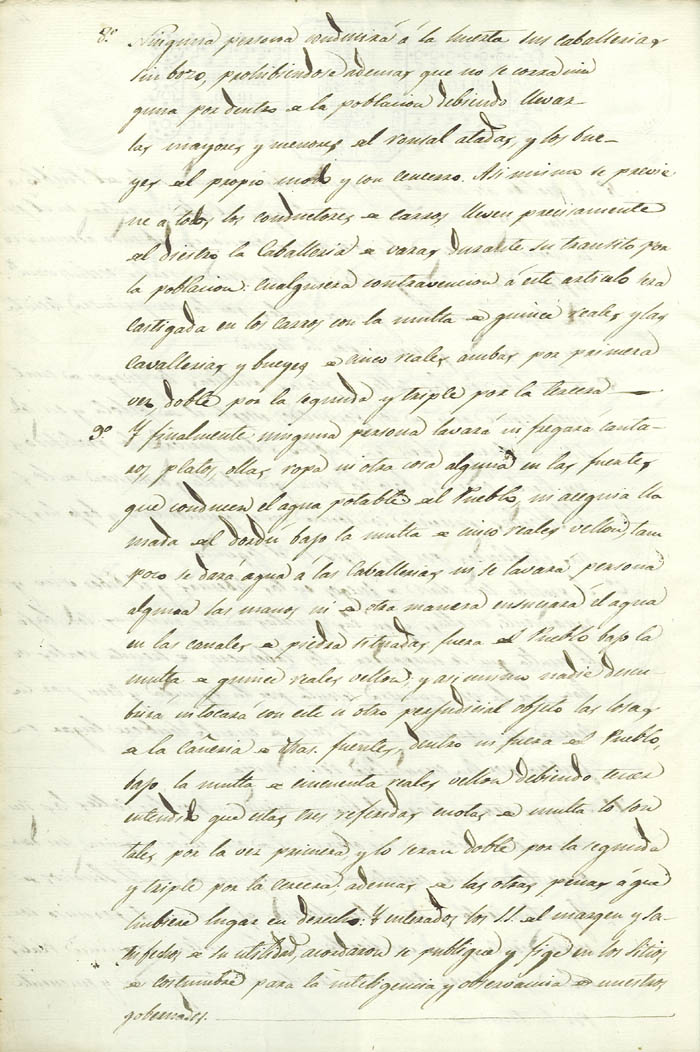 8º Ninguna persona conducirá á la huerta sus caballerias
sin bozo, prohibiendose ademas que no se corra nin
guna por dentro de la poblacion debiendo llevar
las mayores y menores del ronsal atadas, y los bue-
yes del propio modo y con cencerro. Asi mismo se previe
ne á todos los conductores de carros lleven precisamente
del diestro la Caballeria de varas durante su transito por
la poblacion: cualquiera contravencion á este articulo sera
castigada en los carros con la multa de quince reales y las
cavallerias y bueyes de cinco reales ambas por primera
vez, doble por la segunda y triple por la tercera
9º Y finalmente: ninguna persona lavará ni fregará canta-
ros, platos, ollas, ropa ni otra cosa alguna en las fuentes
que conducen el agua potable del Pueblo, ni acequia lla
mada del dordú bajo la multa de cinco reales vellon, tam
poco se dará agua á las Caballerias ni se lavara persona
alguna las manos ni de otra manera ensuciará el agua
en las canales de piedra situadas fuera del Pueblo bajo la
multa de quince reales vellon, y asi mismo nadie descu-
brirá ni tocará con este ú otro perjudicial objeto las losas
de la cañeria de dhas. fuentes, dentro ni fuera del Pueblo,
bajo la multa de cincuenta reales vellon debiendo tener
entendido que estas tres referidas cuotas de multa lo son
tales por la vez primera y lo seran doble por la segunda
y triple por la tercera, ademas de las otras penas á que
hubiere lugar en derecho: Y enterados los SS. del margen y sa-
tisfechos de su utilidad, acordaron se publique y fige en los Sitios
de costumbre para la inteligencia y observancia de nuestros
gobernados.